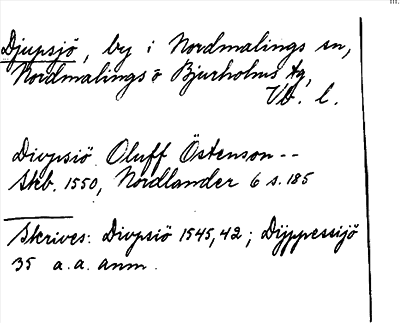 Djupsjö, by i Nordmalings sn,
Nordmalings o Bjurholms tg,
Vb. l.
Divpsiö Oluff Östenson --
Skb. 1550, Nordlander 6 s. 185
Skrives: Divpsiö 1545, 42; Dijppessijö
35 a.a. anm.